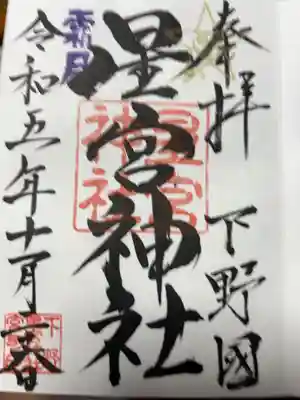 奉拝 下野國
星宮神社
星宮
神社
霜月
令和五年十一月